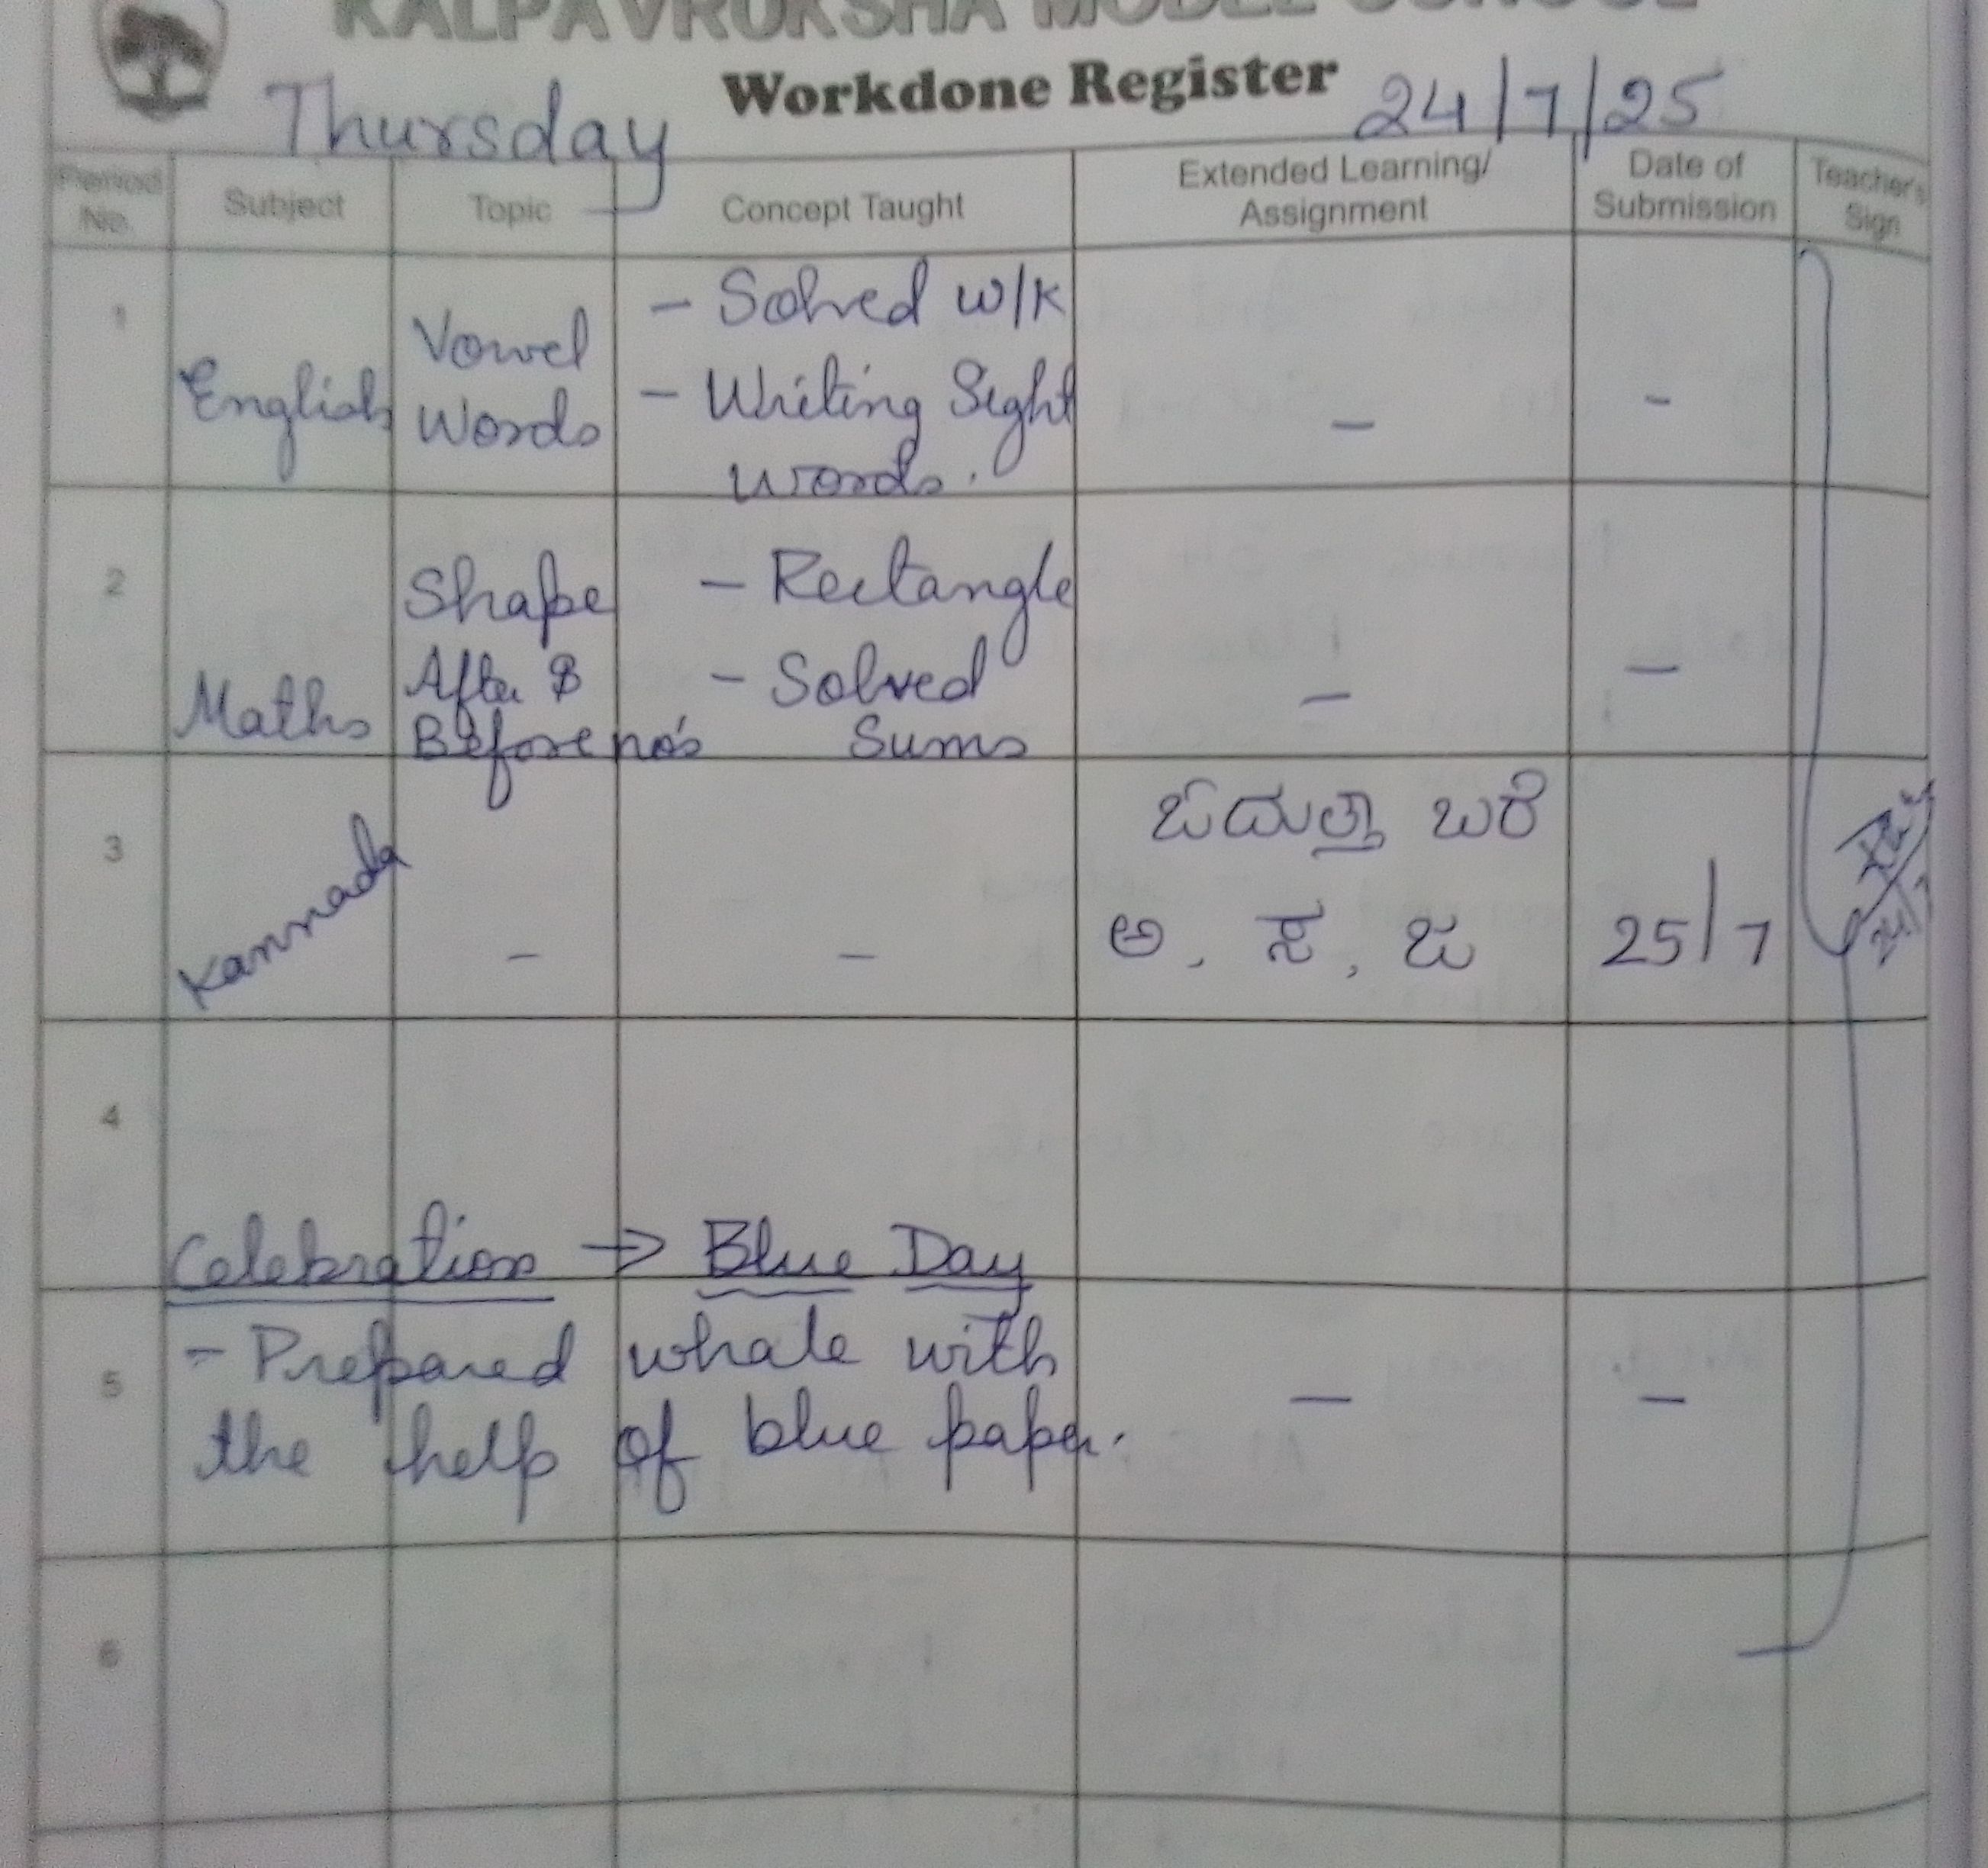 KALPAVRUKSHA MODEL SCHOOL
Workdone Register
Thursday 24/7/25
Period No. Subject Topic Concept Taught Extended Learning/ Assignment Date of Submission Teacher's Sign
1 English Vowel Words - Solved w/k - -
- Writing Sight words.
2 Maths Shape - Rectangle - -
After & Before no's - Solved Sums
3 Kannada - - ಓದುತ್ತಾ ಬರೆ
ಅ, ಸ, ಜ 25/7
24/7
4
Celebration → Blue Day
5 - Prepared whale with - -
the help of blue paper.
6